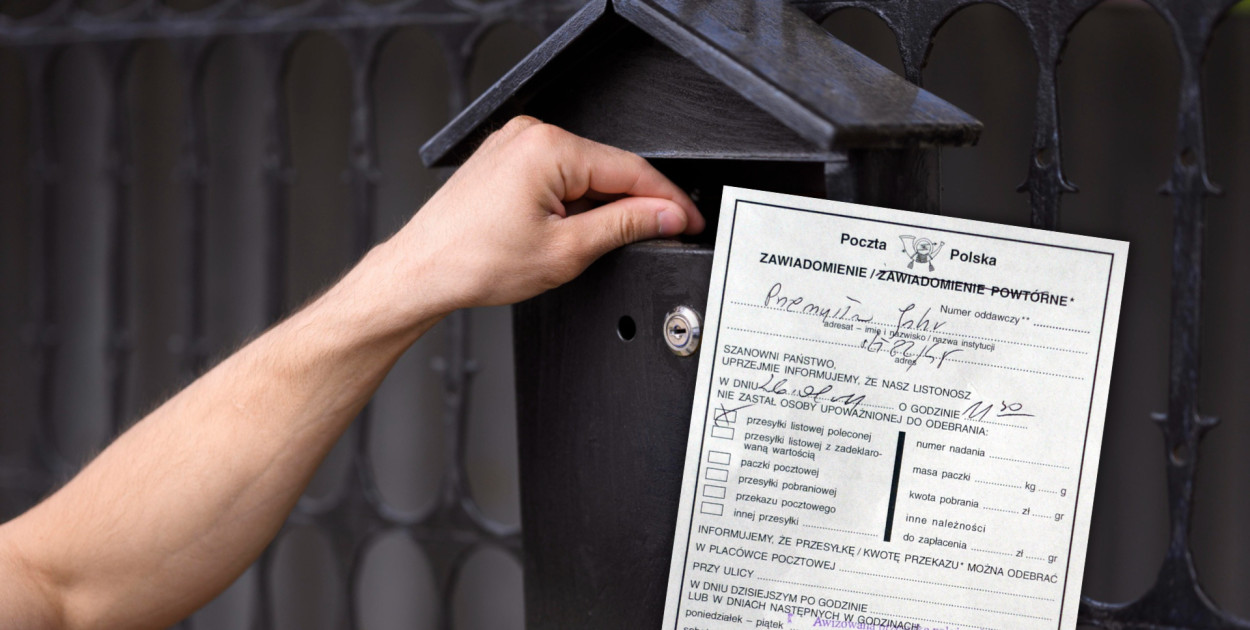 Poczta Polska
ZAWIADOMIENIE / ZAWIADOMIENIE POWTÓRNE*
Numer oddawczy**
adresat – imię i nazwisko / nazwa instytucji
adres
SZANOWNI PAŃSTWO,
UPRZEJMIE INFORMUJEMY, ŻE NASZ LISTONOSZ
W DNIU O GODZINIE 11 30
NIE ZASTAŁ OSOBY UPOWAŻNIONEJ DO ODEBRANIA:
przesyłki listowej poleconej
przesyłki listowej z zadeklaro-
waną wartością
paczki pocztowej
przesyłki pobraniowej
przekazu pocztowego
innej przesyłki
numer nadania
masa paczki kg g
kwota pobrania zł gr
inne należności
do zapłacenia zł gr
INFORMUJEMY, ŻE PRZESYŁKĘ / KWOTĘ PRZEKAZU* MOŻNA ODEBRAĆ
W PLACÓWCE POCZTOWEJ
PRZY ULICY
W DNIU DZISIEJSZYM PO GODZINIE
LUB W DNIACH NASTĘPNYCH W GODZINACH
poniedziałek – piątek Awizowana